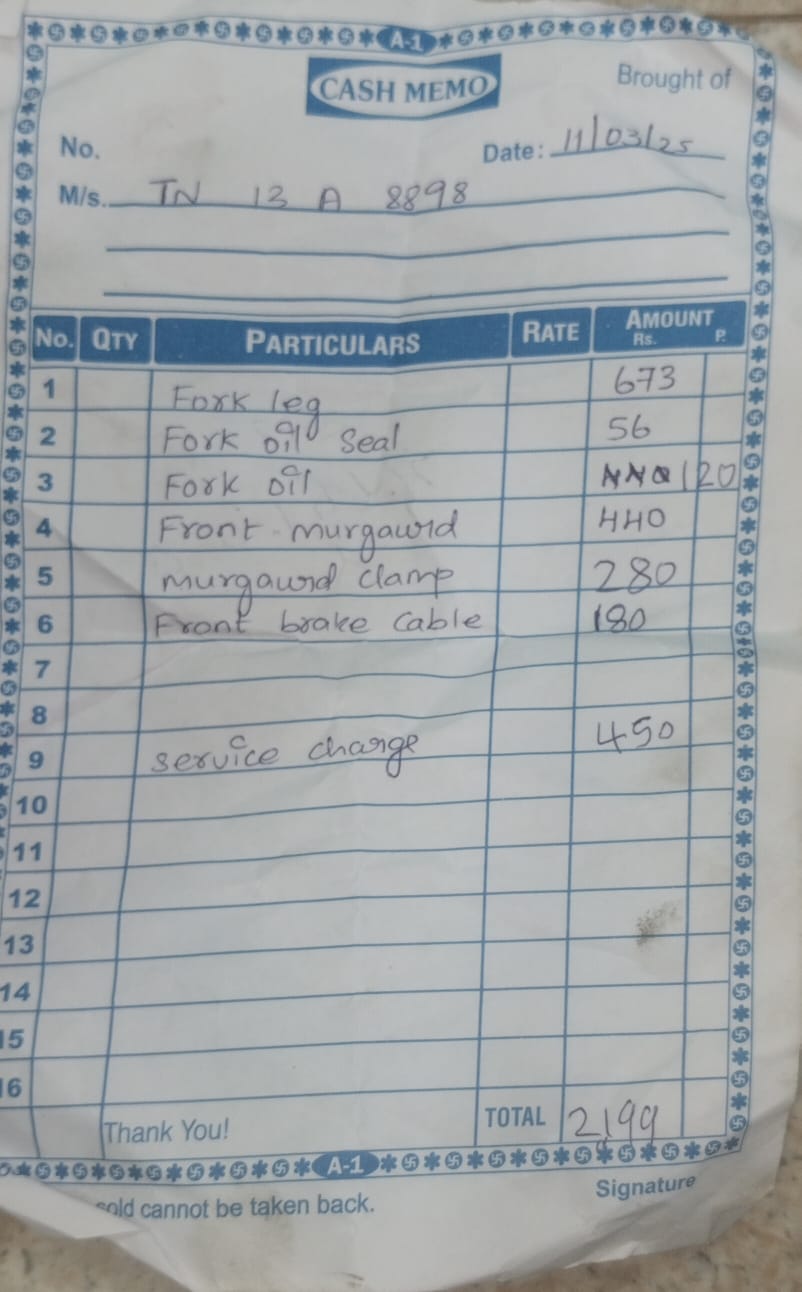 A-1
CASH MEMO
Brought of
No.
Date: 11/03/25
M/s. TN 13 A 8898
No. QTY PARTICULARS RATE AMOUNT
Rs. P.
1 Fork leg 673
2 Fork oil seal 56
3 Fork oil 120
4 Front murgaurd 440
5 murgaurd clamp 280
6 Front brake cable 180
7
8
9 service charge 450
10
11
12
13
14
15
16
Thank You! TOTAL 2,199
A-1
sold cannot be taken back.
Signature